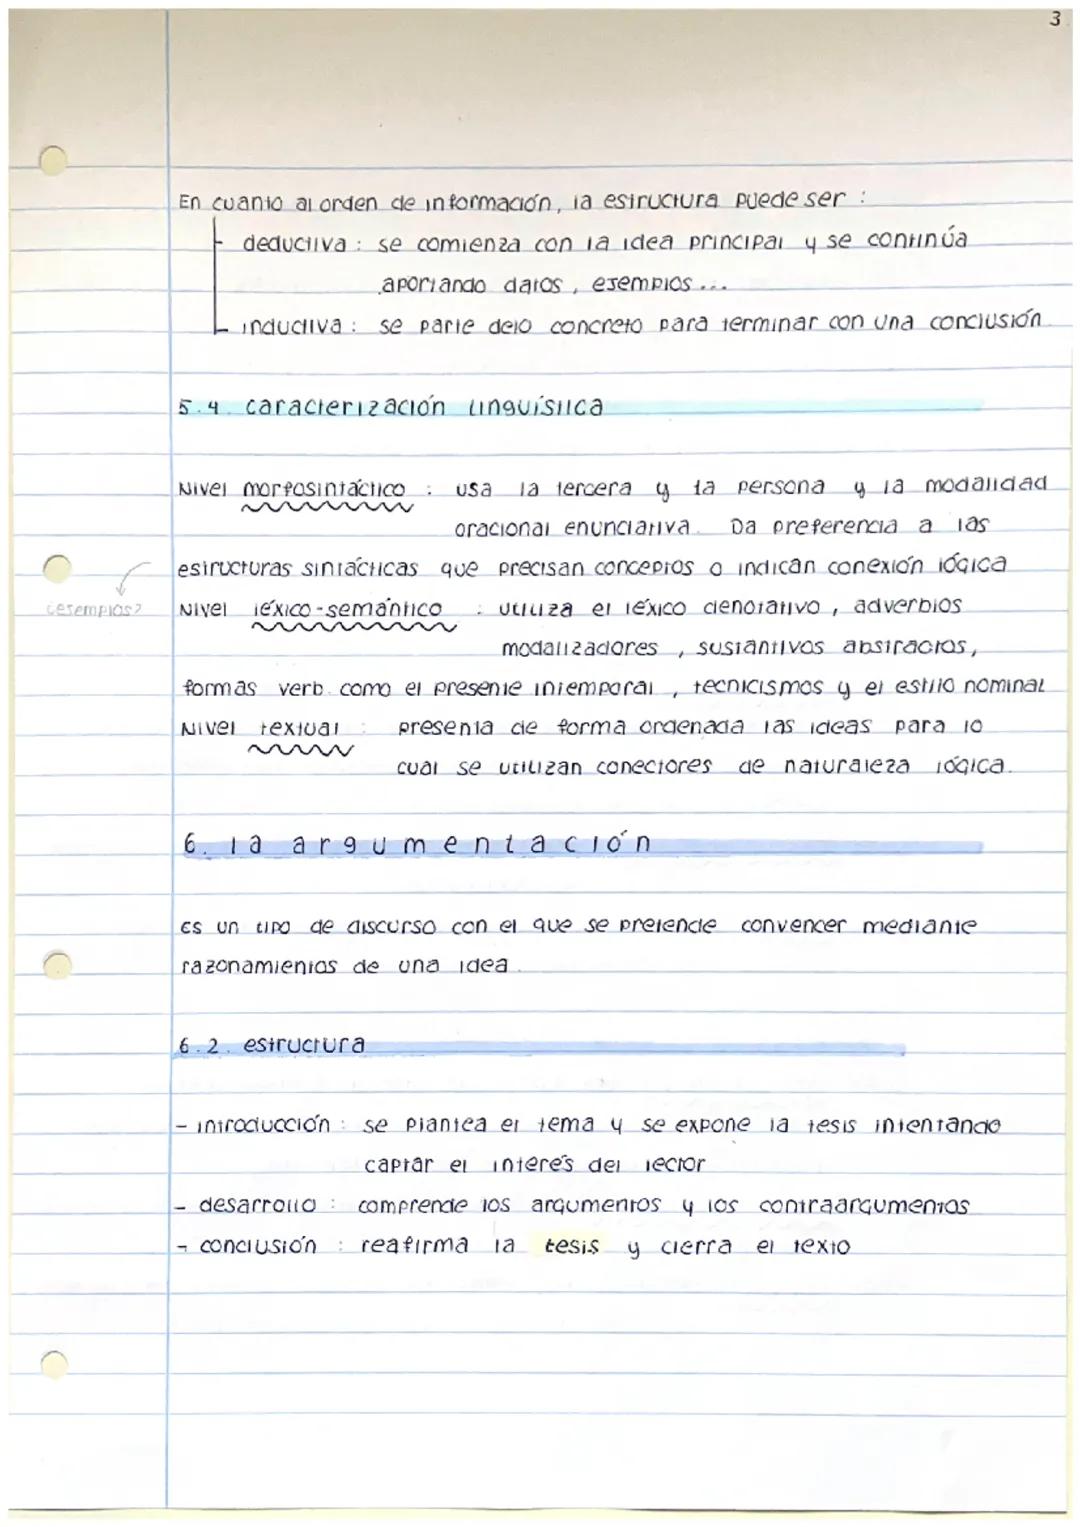 3
En cuanto al orden de información, la estructura puede ser :
deductiva : se comienza con la idea principal y se continúa
aportando datos, ejemplos ...
inductiva : se parte de lo concreto para terminar con una conclusión.
5.4. caracterización lingüística
Nivel morfosintáctico : usa la tercera y la persona y la modalidad
oracional enunciativa. Da preferencia a las
estructuras sintácticas que precisan conceptos o indican conexión lógica
¿ejemplos?
Nivel léxico-semántico : utiliza el léxico denotativo, adverbios
modalizadores, sustantivos abstractos,
formas verb. como el presente intemporal, tecnicismos y el estilo nominal
Nivel textual : presenta de forma ordenada las ideas para lo
cual se utilizan conectores de naturaleza lógica.
6. la argumentación
Es un tipo de discurso con el que se pretende convencer mediante
razonamientos de una idea.
6.2. estructura
- introducción : se plantea el tema y se expone la tesis intentando
captar el interés del lector
- desarrollo : comprende los argumentos y los contraargumentos
- conclusión : reafirma la tesis y cierra el texto